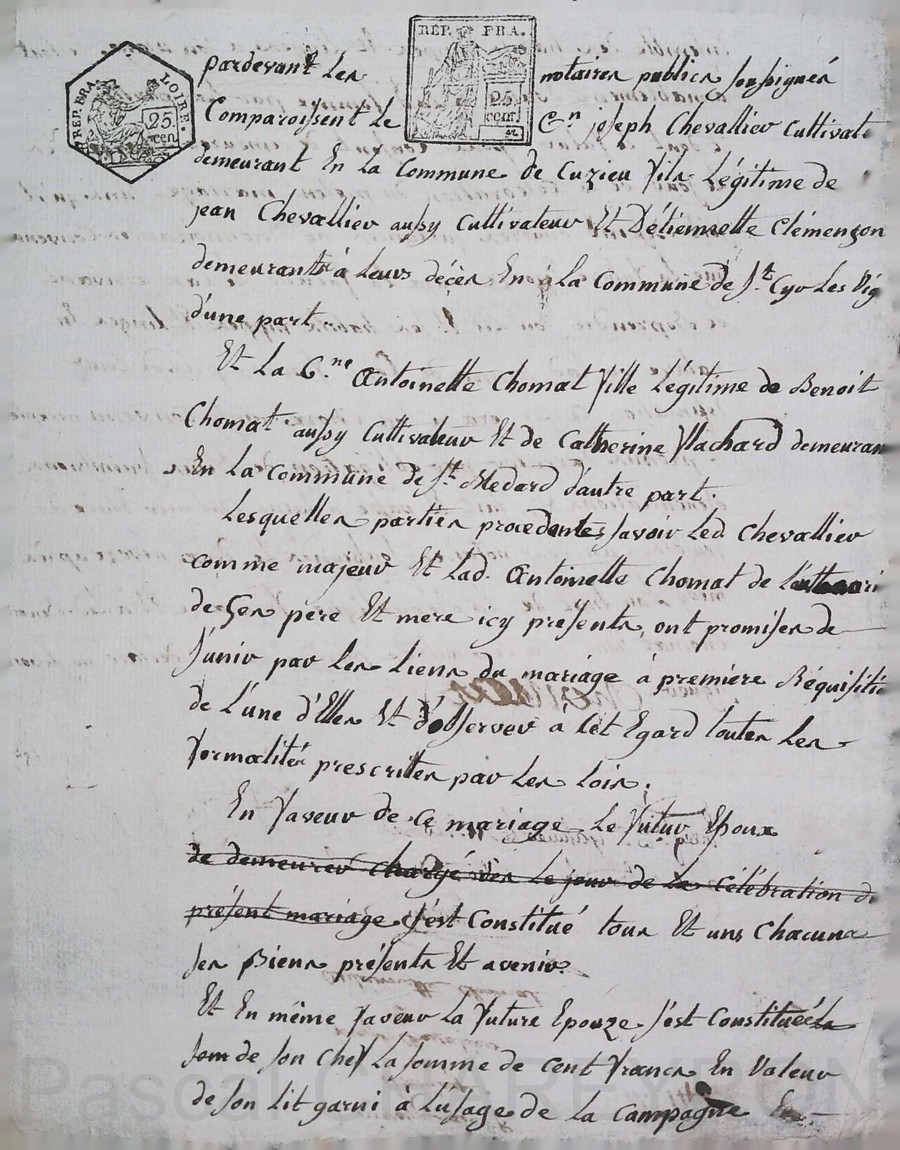 RÉP. FRA. 25 cent.
RÉP. FRA. LOIRE. 25 cen
pardevant les notaires publics soussignés
Comparoissent le C.en joseph Chevallier Cultivat
demeurant En la Commune de Cuzieu fils Légitime de
jean Chevallier aussy Cultivateur Et D'étiennette Clémençon
demeurants à leurs décès En la Commune de S.t Cyr Les Vig
d'une part
Et La C.ne Antoinette Chomat fille Légitime de Benoit
Chomat aussy Cultivateur Et de Catherine flachard demeuran
En La Commune de S.t Medard d'autre part.
Lesquelles parties procedentes savoir Led Chevallier
comme majeur Et Lad. Antoinette Chomat de
de Ses père Et mere icy présents, ont promises de
s'unir par les liens du mariage à première Réquisiti
de L'une d'Elles Et d'observer à Cet Egard toutes Les
formalités prescrittes par Les Lois.
En faveur de ce mariage Le futur Epoux
de demeurer chargé dès Le jour de La Célébration d
présent mariage s'est Constitué tous Et uns Chacuns
ses Biens présents Et avenir.
Et En même faveur La future Epouze s'est Constituée
de son chef La somme de Cent francs En Valeur
de son lit garni à L'usage de La Campagne
Pascal CHAREYRON